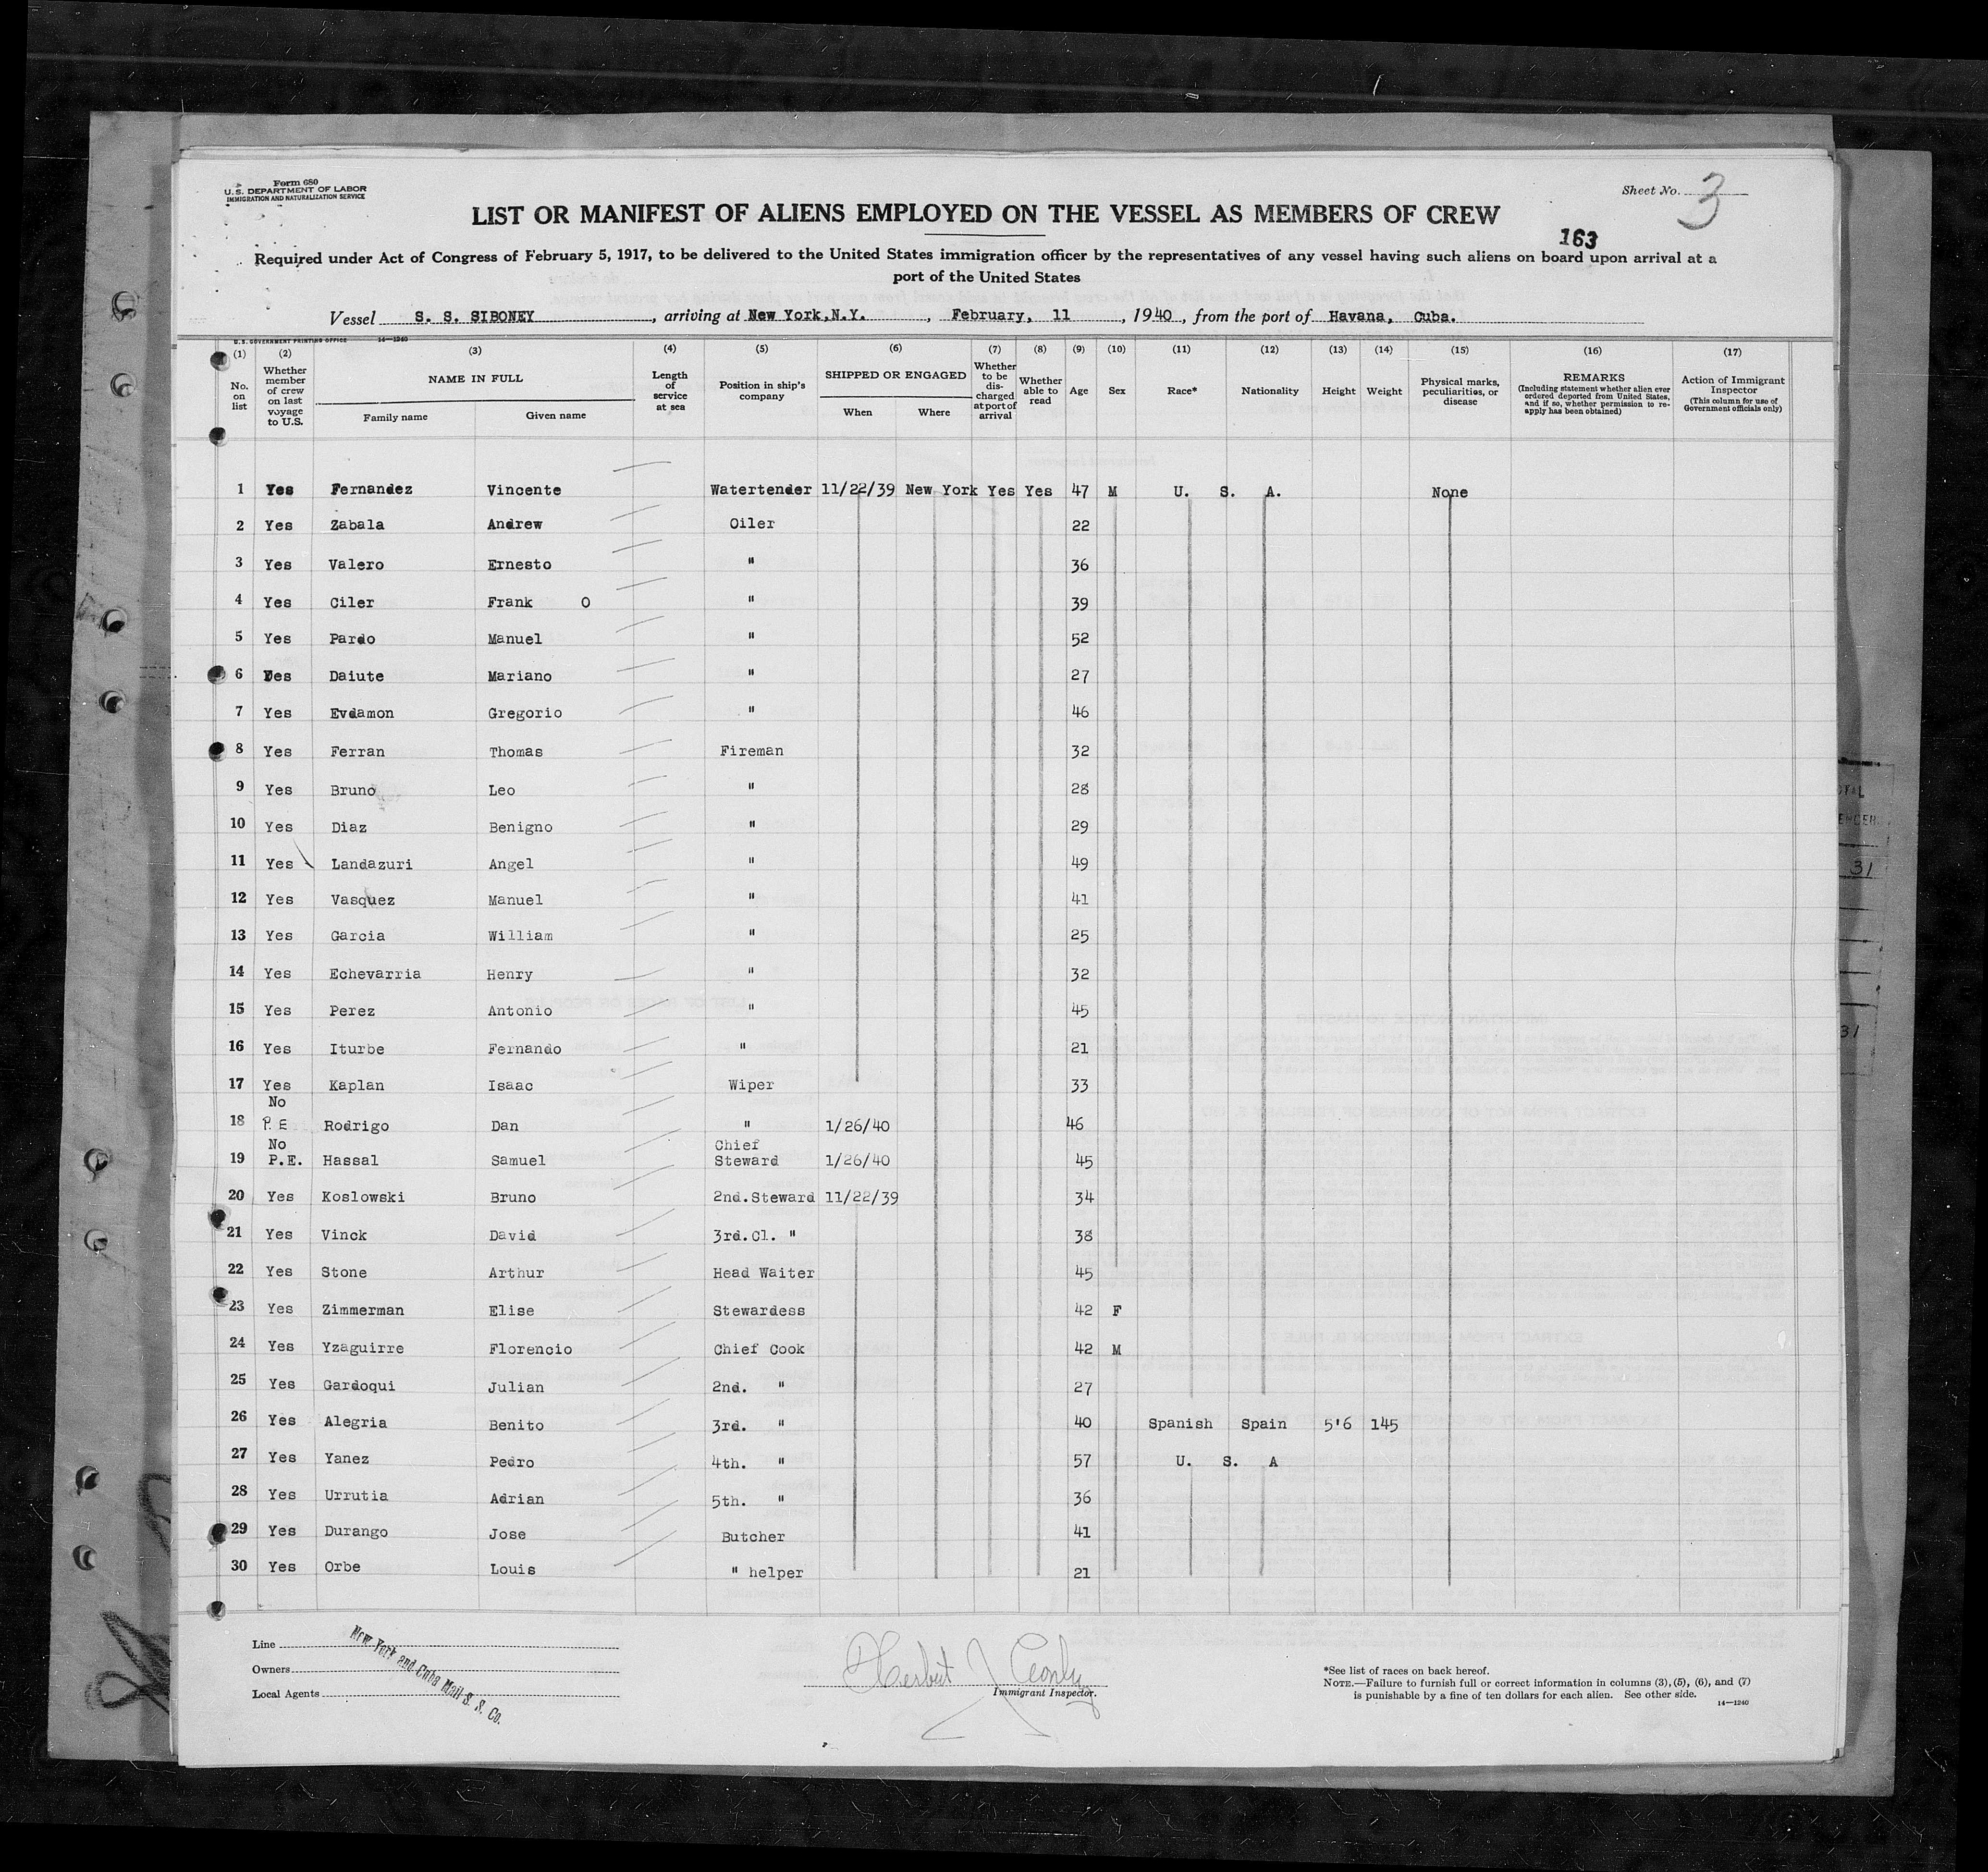 Form 680
U. S. DEPARTMENT OF LABOR
IMMIGRATION AND NATURALIZATION SERVICE
Sheet No. 3
LIST OR MANIFEST OF ALIENS EMPLOYED ON THE VESSEL AS MEMBERS OF CREW
163
Required under Act of Congress of February 5, 1917, to be delivered to the United States immigration officer by the representatives of any vessel having such aliens on board upon arrival at a
port of the United States
Vessel S. S. SIBONEY, arriving at New York, N.Y., February, 11, 1940, from the port of Havana, Cuba.
U. S. GOVERNMENT PRINTING OFFICE 14—1240
(1) No. on list
(2) Whether member of crew on last voyage to U.S.
(3) NAME IN FULL Family name Given name
(4) Length of service at sea
(5) Position in ship's company
(6) SHIPPED OR ENGAGED When Where
(7) Whether to be discharged at port of arrival
(8) Whether able to read
(9) Age
(10) Sex
(11) Race*
(12) Nationality
(13) Height
(14) Weight
(15) Physical marks, peculiarities, or disease
(16) REMARKS (Including statement whether alien ever ordered deported from United States, and if so, whether permission to re-apply has been obtained)
(17) Action of Immigrant Inspector (This column for use of Government officials only)
1 Yes Fernandez Vincente Watertender 11/22/39 New York Yes Yes 47 M U. S. A. None
2 Yes Zabala Andrew Oiler 22
3 Yes Valero Ernesto " 36
4 Yes Ciler Frank O " 39
5 Yes Pardo Manuel " 52
6 Yes Daiute Mariano " 27
7 Yes Evdamon Gregorio " 46
8 Yes Ferran Thomas Fireman 32
9 Yes Bruno Leo " 28
10 Yes Diaz Benigno " 29
11 Yes Landazuri Angel " 49
12 Yes Vasquez Manuel " 41
13 Yes Garcia William " 25
14 Yes Echevarria Henry " 32
15 Yes Perez Antonio " 45
16 Yes Iturbe Fernando " 21
17 Yes Kaplan Isaac Wiper 33
18 No P.E Rodrigo Dan " 1/26/40 46
19 No P.E. Hassal Samuel Chief Steward 1/26/40 45
20 Yes Koslowski Bruno 2nd.Steward 11/22/39 34
21 Yes Vinck David 3rd.Cl. " 38
22 Yes Stone Arthur Head Waiter 45
23 Yes Zimmerman Elise Stewardess 42 F
24 Yes Yzaguirre Florencio Chief Cook 42 M
25 Yes Gardoqui Julian 2nd. " 27
26 Yes Alegria Benito 3rd. " 40 Spanish Spain 5'6 145
27 Yes Yanez Pedro 4th. " 57 U. S. A
28 Yes Urrutia Adrian 5th. " 36
29 Yes Durango Jose Butcher 41
30 Yes Orbe Louis " helper 21
Line
Owners
Local Agents
New York and Cuba Mail S. S. Co.
Herbert J
Immigrant Inspector.
*See list of races on back hereof.
NOTE.—Failure to furnish full or correct information in columns (3), (5), (6), and (7)
is punishable by a fine of ten dollars for each alien. See other side.
14—1240
31
31